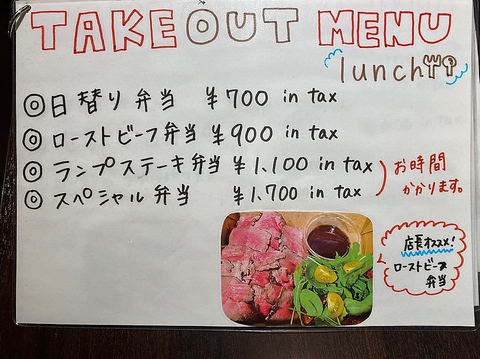 TAKEOUT MENU
lunch
◎日替り弁当 ¥700 in tax
◎ローストビーフ弁当 ¥900 in tax
◎ランプステーキ弁当 ¥1,100 in tax
◎スペシャル弁当 ¥1,700 in tax
お時間
かかります。
店長オススメ!
ローストビーフ
弁当